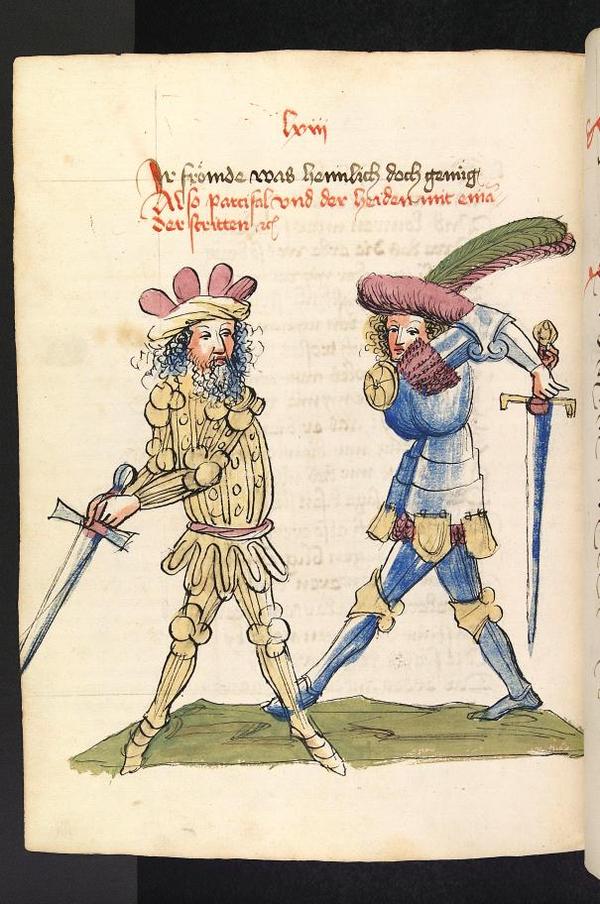 lviii
Ir frömde was heimlich doch genüg
Also partzifal vnd der heiden mit eina
der stritten